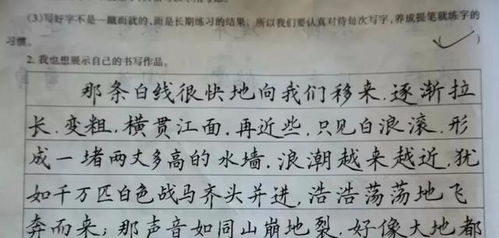 (3)写好字不是一蹴而就的,而是长期练习的结果。所以我们要认真对待每次写字,养成提笔就练字的
习惯。 (✓)
2. 我也想展示自己的书写作品。
那条白线很快地向我们移来,逐渐拉
长,变粗,横贯江面,再近些,只见白浪滚,形
成一堵两丈多高的水墙,浪潮越来越近,犹
如千万匹白色战马齐头并进,浩浩荡荡地飞
奔而来;那声音如同山崩地裂,好像大地都